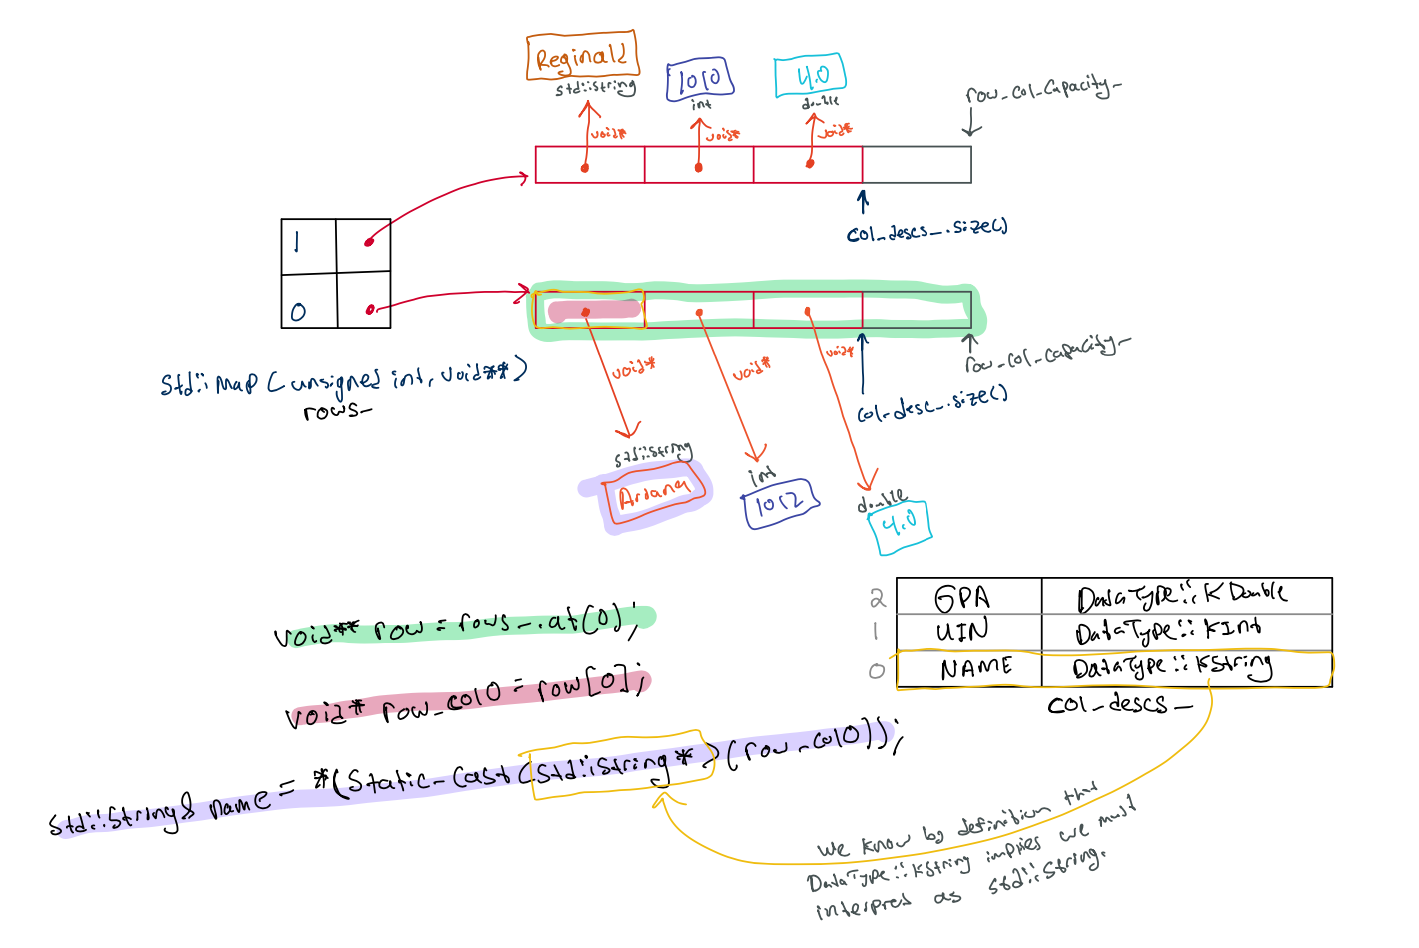 Reginald
std::string
1010
int
4.0
double
row_col_capacity_
void*
void*
void*
1
0
col_descs_.size()
std::map<unsigned int, void**>
rows_
void*
void*
void*
row_col_capacity_
col_desc_.size()
std::string
Ariana
int
1012
double
4.0
2 GPA DataType::kDouble
1 UIN DataType::kInt
0 NAME DataType::kString
col_descs_
void** row = rows_.at(0);
void* row_col0 = row[0];
std::string& name = *(static_cast<std::string*>(row_col0));
We know by definition that
DataType::kString implies we must
interpret as std::string.